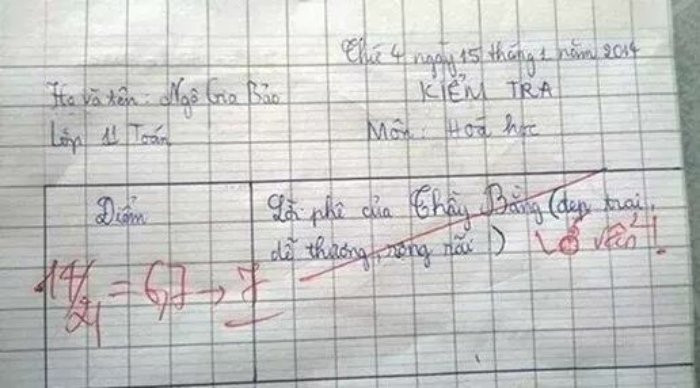 Thứ 4 ngày 15 tháng 1 năm 2014
Họ và tên: Ngô Gia Bảo
KIỂM TRA
Lớp 11 Toán
Môn: Hoá học
Điểm
Lời phê của Thầy Bằng (đẹp trai,
dễ thương, rộng rãi)
14/21 = 6,7 → 7